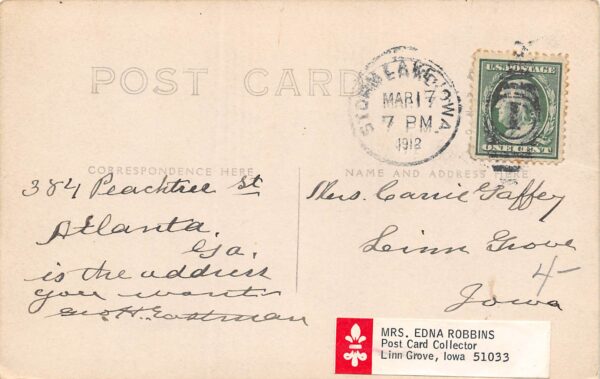 POST CARD
STORM LAKE, IOWA.
MAR 17
7 PM
1912
U.S. POSTAGE
ONE CENT
CORRESPONDENCE HERE
NAME AND ADDRESS HERE
384 Peachtree St
Atlanta,
Ga.
is the address
you want
Geo H. Eastman
Mrs. Carrie Gaffey
Linn Grove
Iowa
4-
MRS. EDNA ROBBINS
Post Card Collector
Linn Grove, Iowa 51033